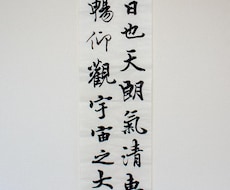 日也天朗氣清惠
暢仰觀宇宙之大